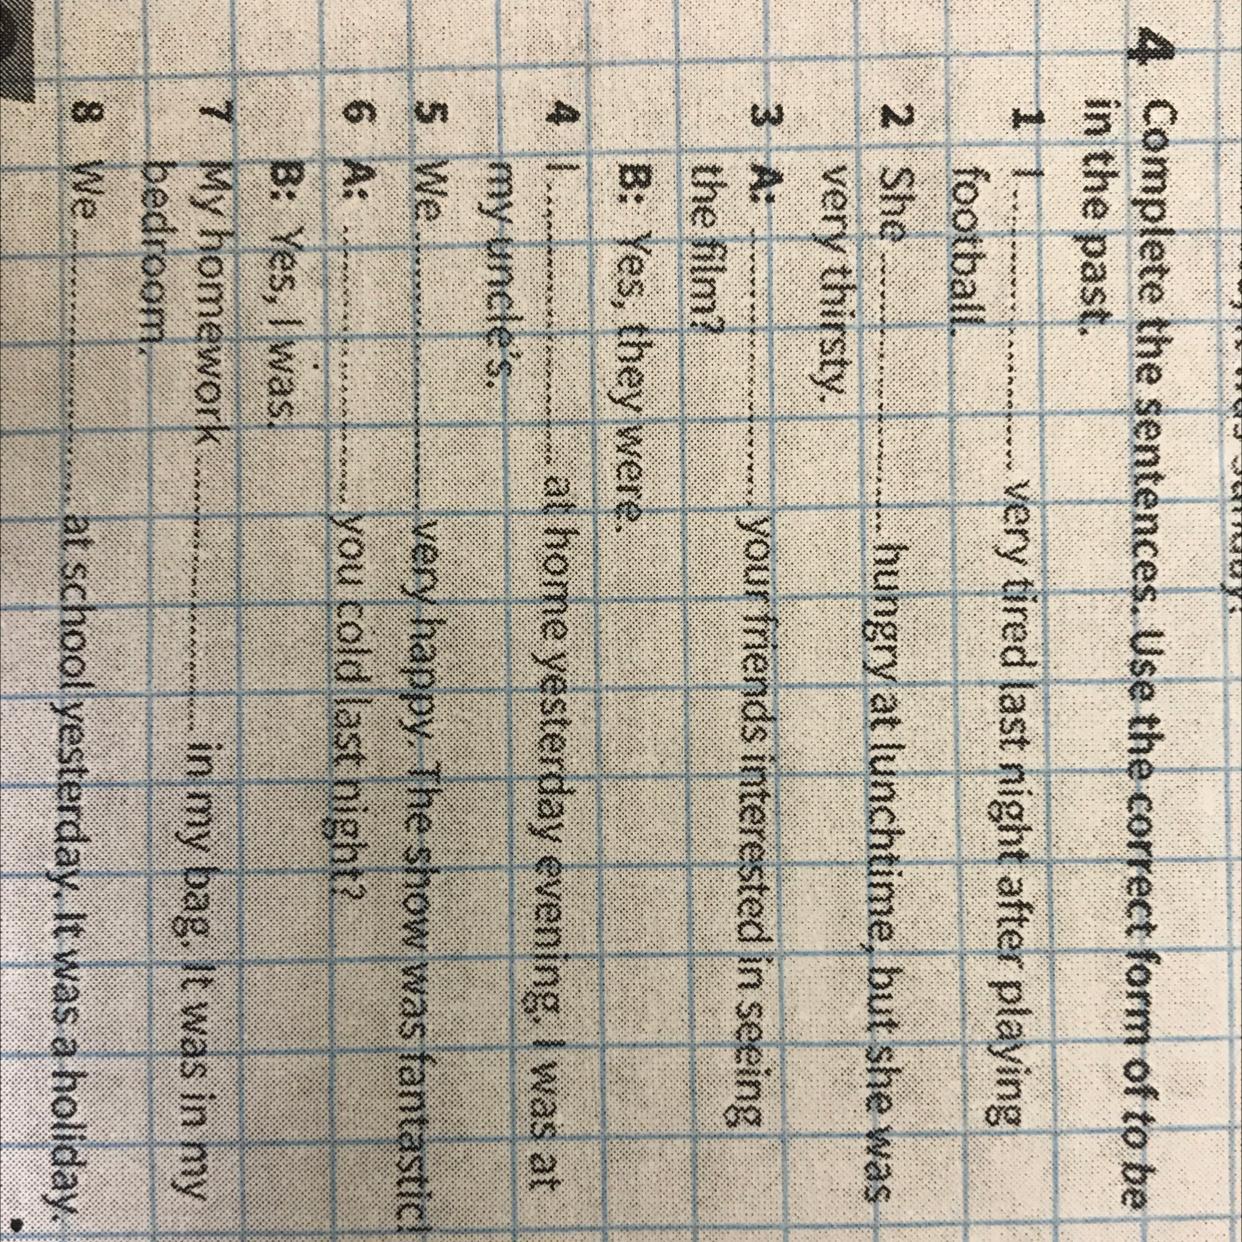 4 Complete the sentences. Use the correct form of to be
in the past.
1 I .................... very tired last night after playing
football.
2 She .................... hungry at lunchtime, but she was
very thirsty.
3 A: .................... your friends interested in seeing
the film?
B: Yes, they were.
4 I .................... at home yesterday evening. I was at
my uncle's.
5 We .................... very happy. The show was fantastic!
6 A: .................... you cold last night?
B: Yes, I was.
7 My homework .................... in my bag. It was in my
bedroom.
8 We .................... at school yesterday. It was a holiday.